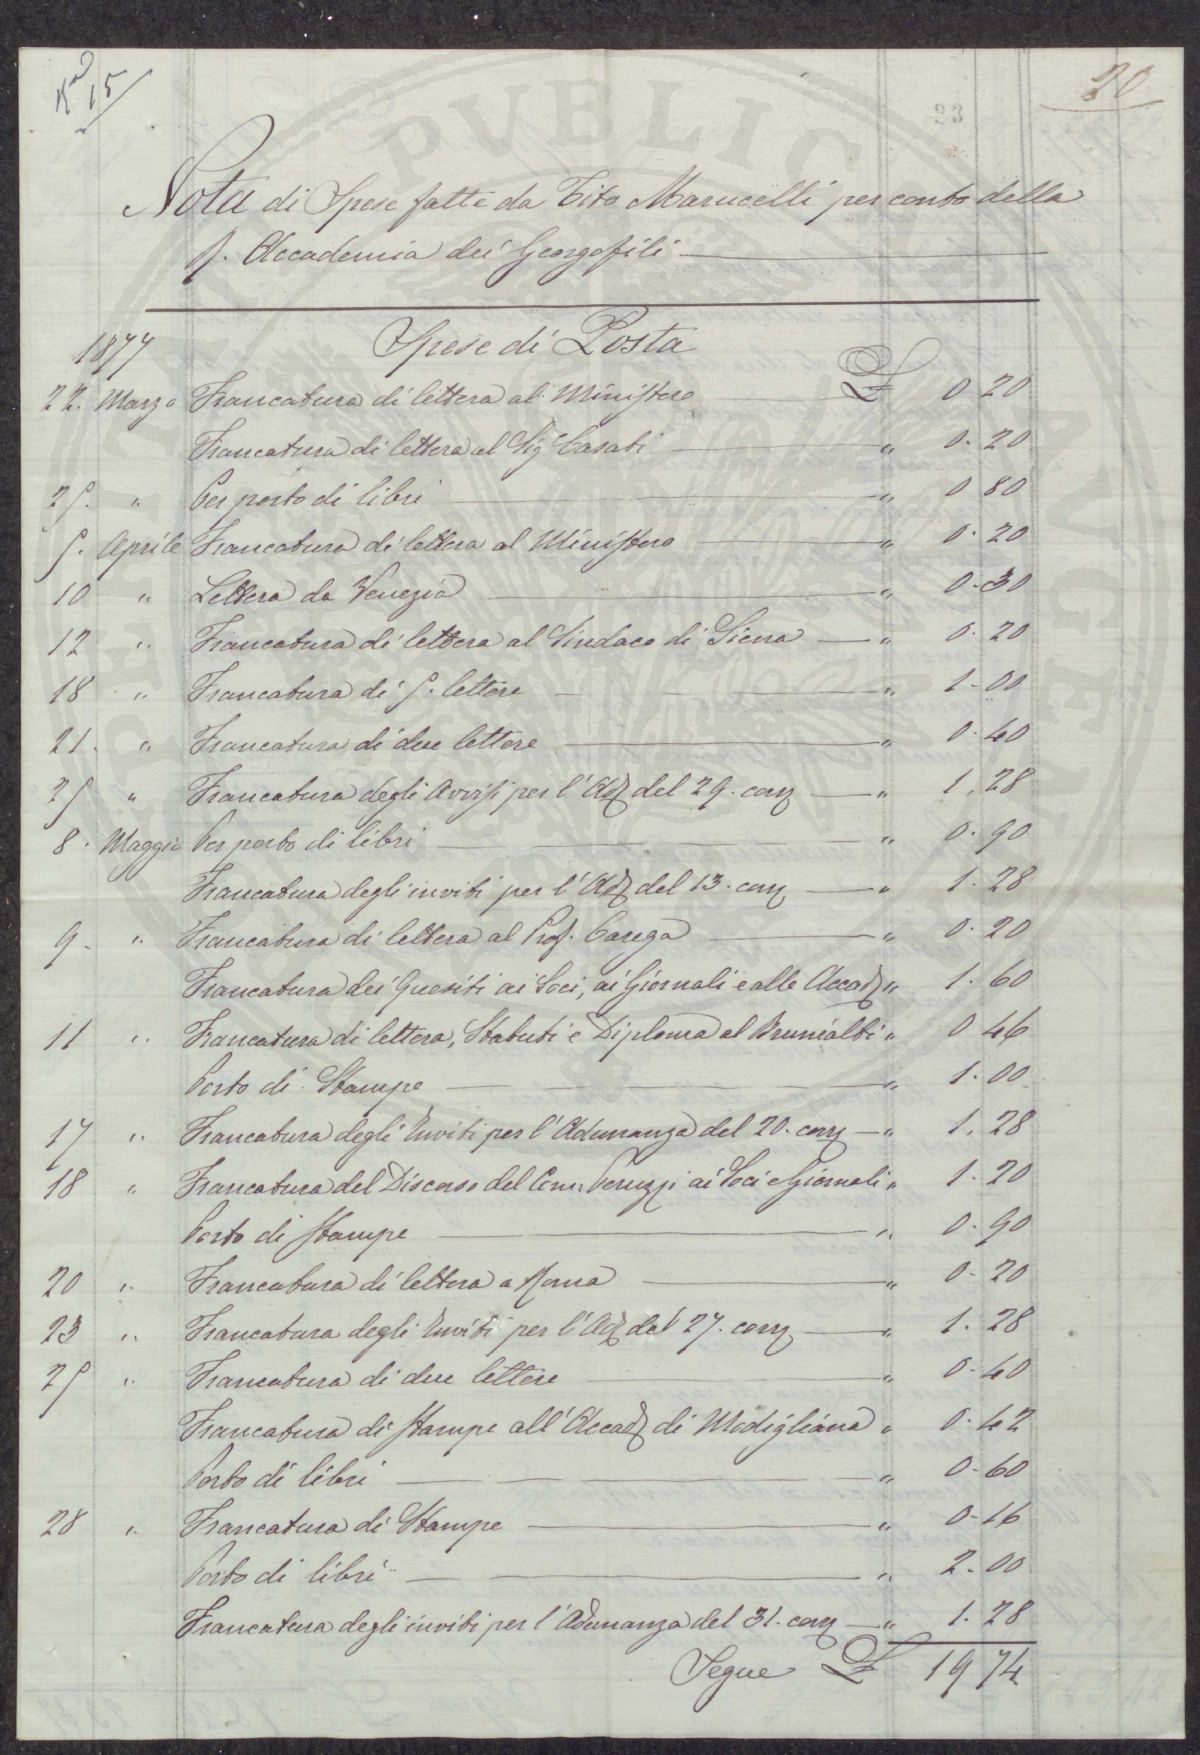 N° 15
20
23
Nota di Spese fatte da Tito Marucelli per conto della
R. Accademia dei Georgofili
Spese di Posta
1877
22. Marzo Francatura di lettera al Ministero £ 0. 20
Francatura di lettera al Sig Casati " 0. 20
25. " Per porto di libri " 0 80
5. Aprile Francatura di lettera al Ministero " 0. 20
10 " Lettera da Venezia " 0. 30
12 " Francatura di lettera al Sindaco di Siena " 0. 20
18 " Francatura di 5. lettere " 1. 00
21. " Francatura di due lettere " 0. 40
25 " Francatura degli Avvisi per l'Adz del 29. corr " 1. 28
8. Maggio Per porto di libri " 0. 90
Francatura degli inviti per l'Adz del 13. corr " 1. 28
9. " Francatura di lettera al Prof. Carega " 0. 20
Francatura dei Quesiti ai Soci, ai Giornali e alle Accadz " 1. 60
11 " Francatura di lettera, Statuti e Diploma al Brunialti " 0 46
Porto di Stampe " 1. 00
17 " Francatura degli Inviti per l'Adunanza del 20. corr " 1. 28
18 " Francatura del Discorso del Com. Peruzzi ai Soci e Giornali " 1. 20
Porto di Stampe " 0. 90
20 " Francatura di lettera a Roma " 0. 20
23 " Francatura degli Inviti per l'Adz del 27. corr " 1. 28
25 " Francatura di due lettere " 0. 40
Francatura di Stampe all'Accadz di Modigliana " 0. 42
Porto di libri " 0. 60
28 " Francatura di Stampe " 0. 16
Porto di libri " 2. 00
Francatura degli inviti per l'Adunanza del 31. corr " 1. 28
Segue £ 19 74